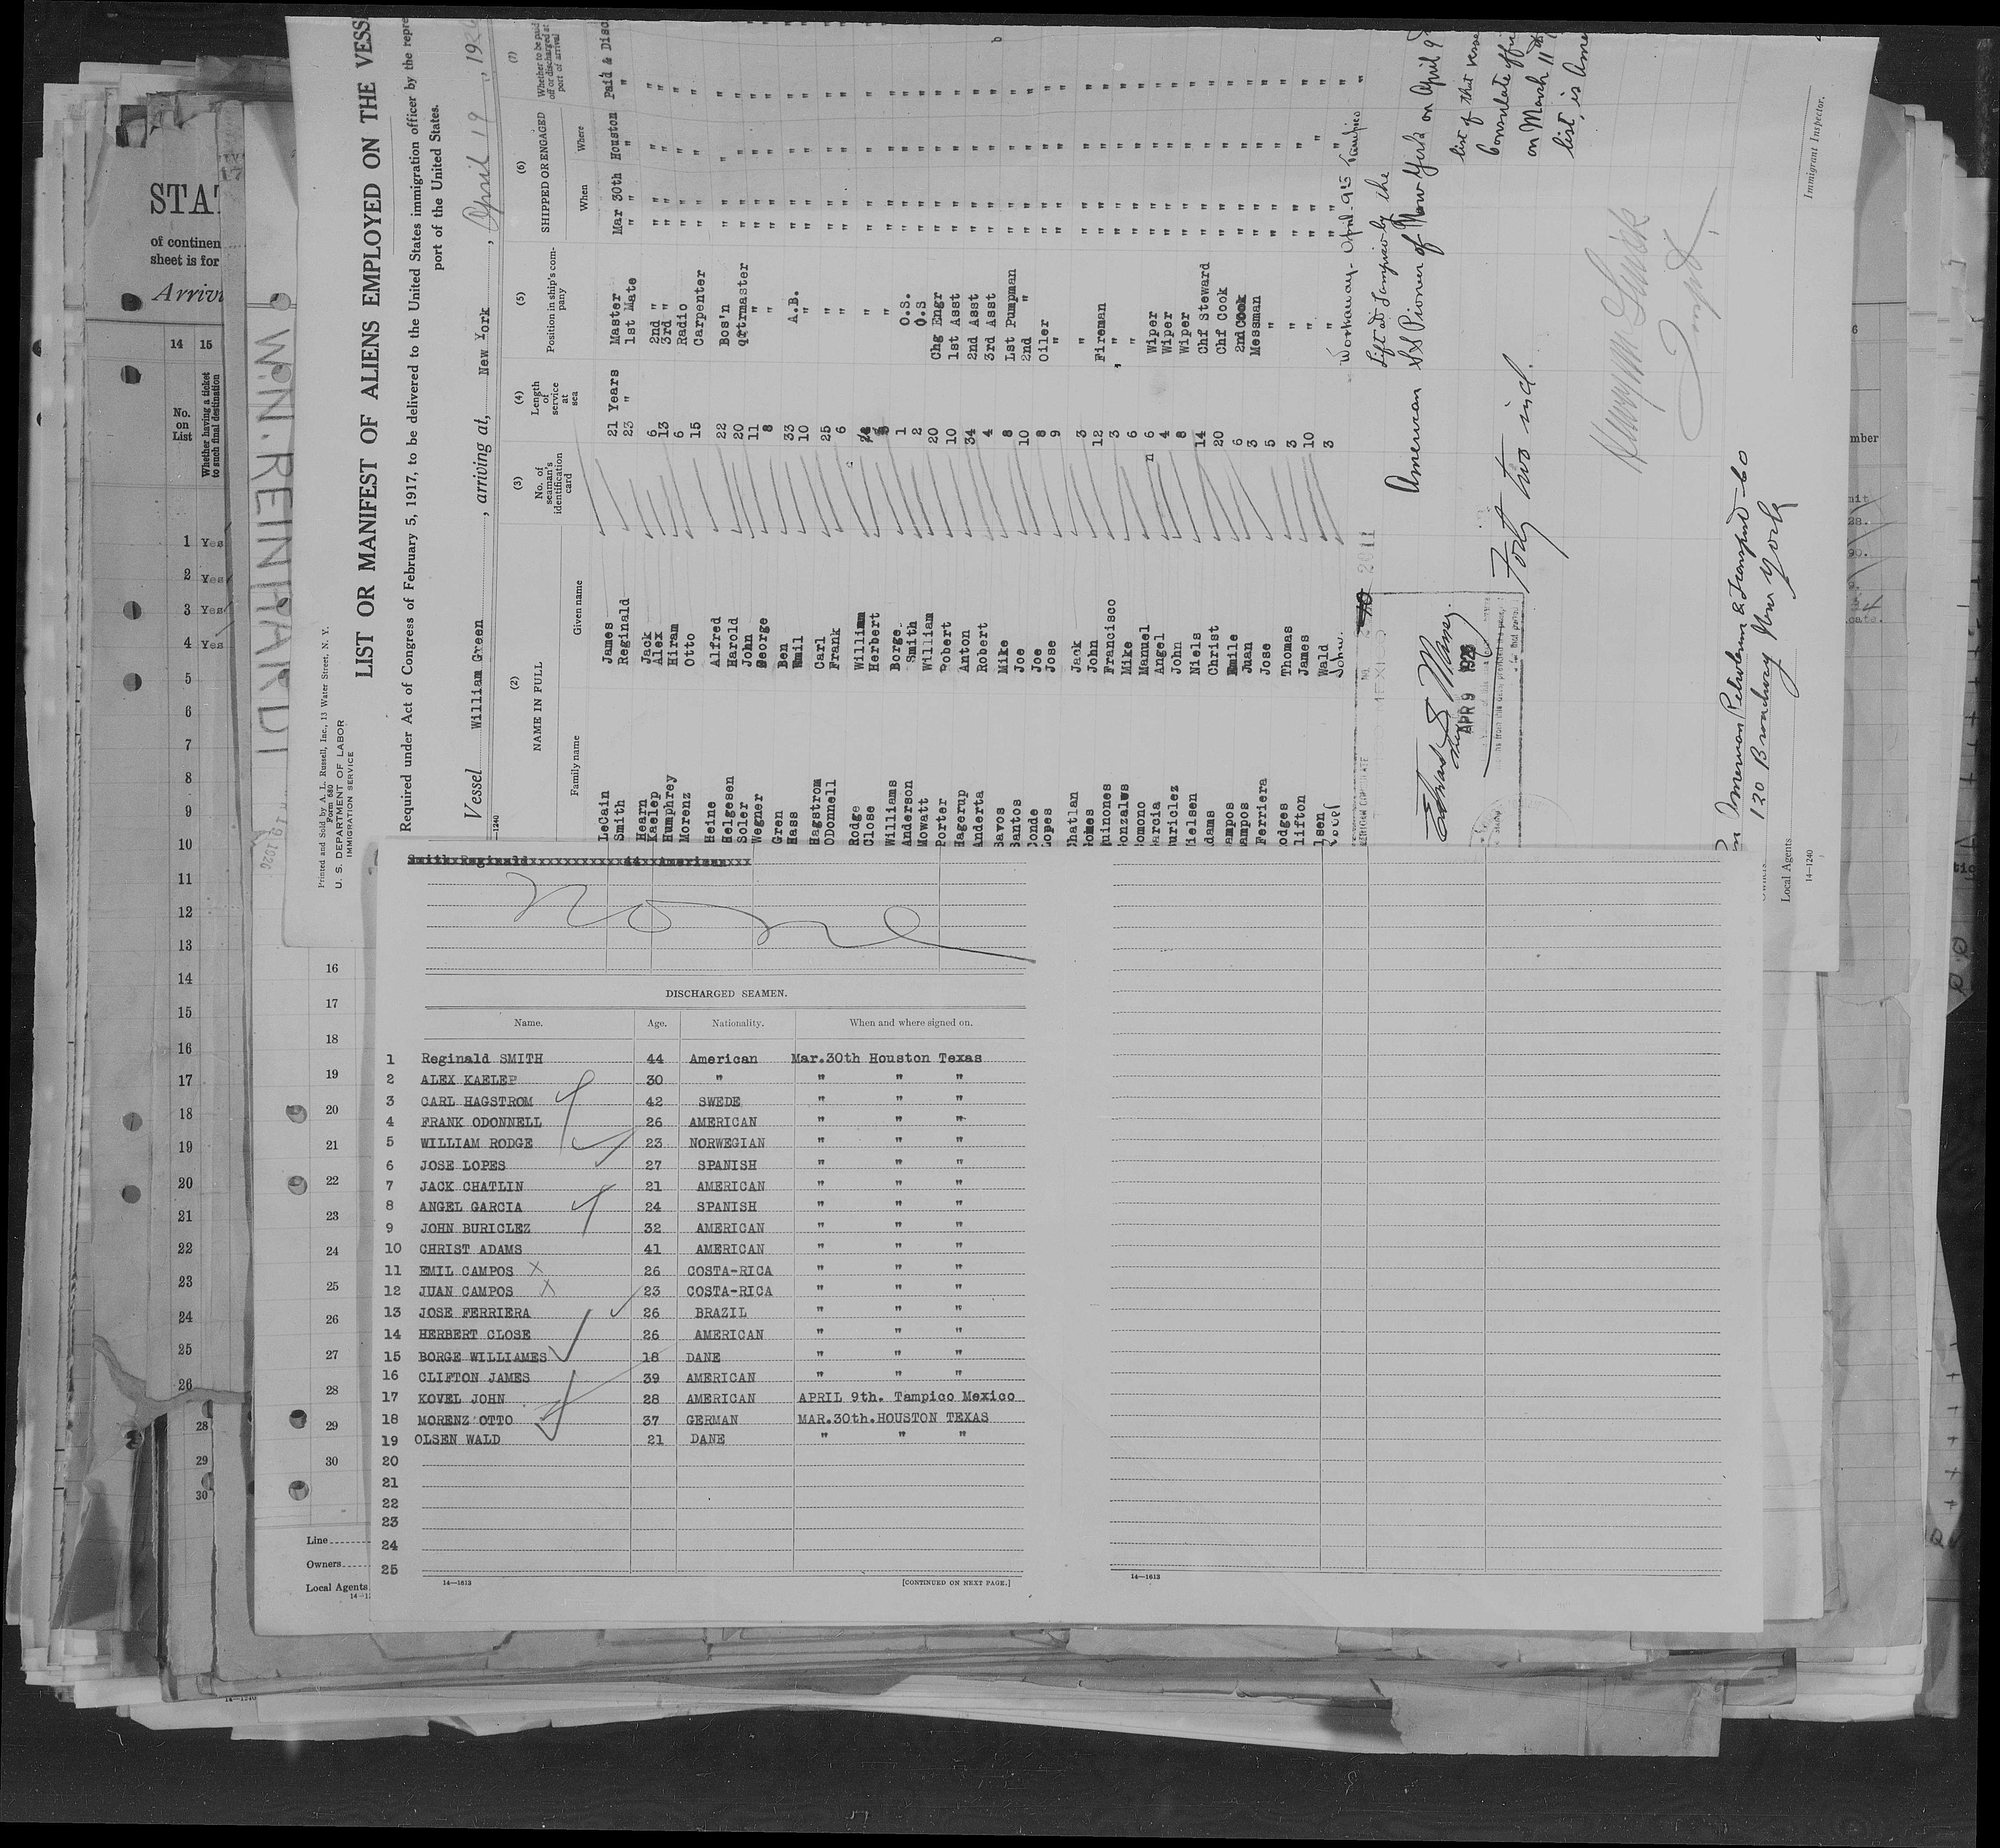 STAT
of continen
sheet is for
Arrivi
14 15
No. on List
Whether having a ticket to such final destination
1 Yes
2 Yes
3 Yes
4 Yes
5
6
7
8
9
10
11
12
13
14
15
16
17
18
19
20
21
22
23
24
25
26
28
29
30
W.N. REINHARDT
16
17
18
19
20
21
22
23
24
25
26
27
28
29
30
Line
Owners
Local Agents
Printed and Sold by A. L. Russell, Inc., 13 Water Street, N. Y.
Form 680
U. S. DEPARTMENT OF LABOR
IMMIGRATION SERVICE
LIST OR MANIFEST OF ALIENS EMPLOYED ON THE VESS
Required under Act of Congress of February 5, 1917, to be delivered to the United States immigration officer by the repre
port of the United States.
Vessel William Green, arriving at, New York, April 19, 192
14-1240
(2) (3) (4) (5) (6) (7)
NAME IN FULL
Family name Given name
No. of seaman's identification card
Length of service at sea
Position in ship's company
SHIPPED OR ENGAGED
When Where
Whether to be paid off or discharged at port of arrival
LeCain James 21 Years Master Mar 30th Houston Paid & Disc
Smith Reginald 23 " 1st Mate " " " "
Hearn Jack 6 2nd " " " " "
Kaelep Alex 13 3rd " " " " "
Humphrey Hiram 6 Radio " " " "
Morenz Otto 15 Carpenter " " " "
Heine Alfred 22 Bos'n " " " "
Helgesen Harold 20 qrtrmaster " " " "
Soler John 11 " " " " "
Wegner George 8 " " " " "
Gren Ben 33 A.B. " " " "
Hass Emil 10 " " " " "
Hagstrom Carl 25 " " " " "
ODonnell Frank 6 " " " " "
Rodge William " " " " "
Close Herbert " " " " "
Williams Borge 1 O.S. " " " "
Anderson Smith 2 O.S " " " "
Mowatt William 20 Chg Engr " " " "
Porter Robert 10 1st Asst " " " "
Hagerup Anton 34 2nd Asst " " " "
Anderta Robert 4 3rd Asst " " " "
Savos Mike 8 Lst Pumpman " " " "
Santos Joe 10 2nd " " " " "
Conde Joe 8 Oiler " " " "
Lopes Jose 9 " " " " "
Chatlan Jack 3 " " " " "
Gomes John 12 Fireman " " " "
quinones Francisco 3 " " " " "
Gonzales Mike 6 " " " " "
omono Manuel 6 Wiper " " " "
arcia Angel 4 Wiper " " " "
uriclez John 8 Wiper " " " "
ielsen Niels 14 Chf Steward " " " "
dams Christ 20 Chf Cook " " " "
ampos Emile 6 2nd Cook " " " "
ampos Juan 3 Messman " " " "
Ferriera Jose 5 " " " " "
odges Thomas 3 " " " " "
lifton James 10 " " " " "
lsen Wald 3 " " " " "
John Workaway - April 9th Tampico "
Left at Tampico by the
American SS Pioneer of New York on April 9th
list of that vesse
Consulate offi
on March 11th
list, is Ame
APR 9 1926
Forty two incl.
Immigrant Inspector.
American Petroleum & Transport Co
120 Broadway New York
Local Agents
14-1240
Smith Reginald 44 American
None
DISCHARGED SEAMEN.
Name. Age. Nationality. When and where signed on.
1 Reginald SMITH 44 American Mar.30th Houston Texas
2 ALEX KAELEP 30 " " " "
3 CARL HAGSTROM 42 SWEDE " " "
4 FRANK ODONNELL 26 AMERICAN " " "
5 WILLIAM RODGE 23 NORWEGIAN " " "
6 JOSE LOPES 27 SPANISH " " "
7 JACK CHATLIN 21 AMERICAN " " "
8 ANGEL GARCIA 24 SPANISH " " "
9 JOHN BURICLEZ 32 AMERICAN " " "
10 CHRIST ADAMS 41 AMERICAN " " "
11 EMIL CAMPOS 26 COSTA-RICA " " "
12 JUAN CAMPOS 23 COSTA-RICA " " "
13 JOSE FERRIERA 26 BRAZIL " " "
14 HERBERT CLOSE 26 AMERICAN " " "
15 BORGE WILLIAMES 18 DANE " " "
16 CLIFTON JAMES 39 AMERICAN " " "
17 KOVEL JOHN 28 AMERICAN APRIL 9th. Tampico Mexico
18 MORENZ OTTO 37 GERMAN MAR.30th.HOUSTON TEXAS
19 OLSEN WALD 21 DANE " " "
20
21
22
23
24
25
14—1613 [CONTINUED ON NEXT PAGE.]
14—1613